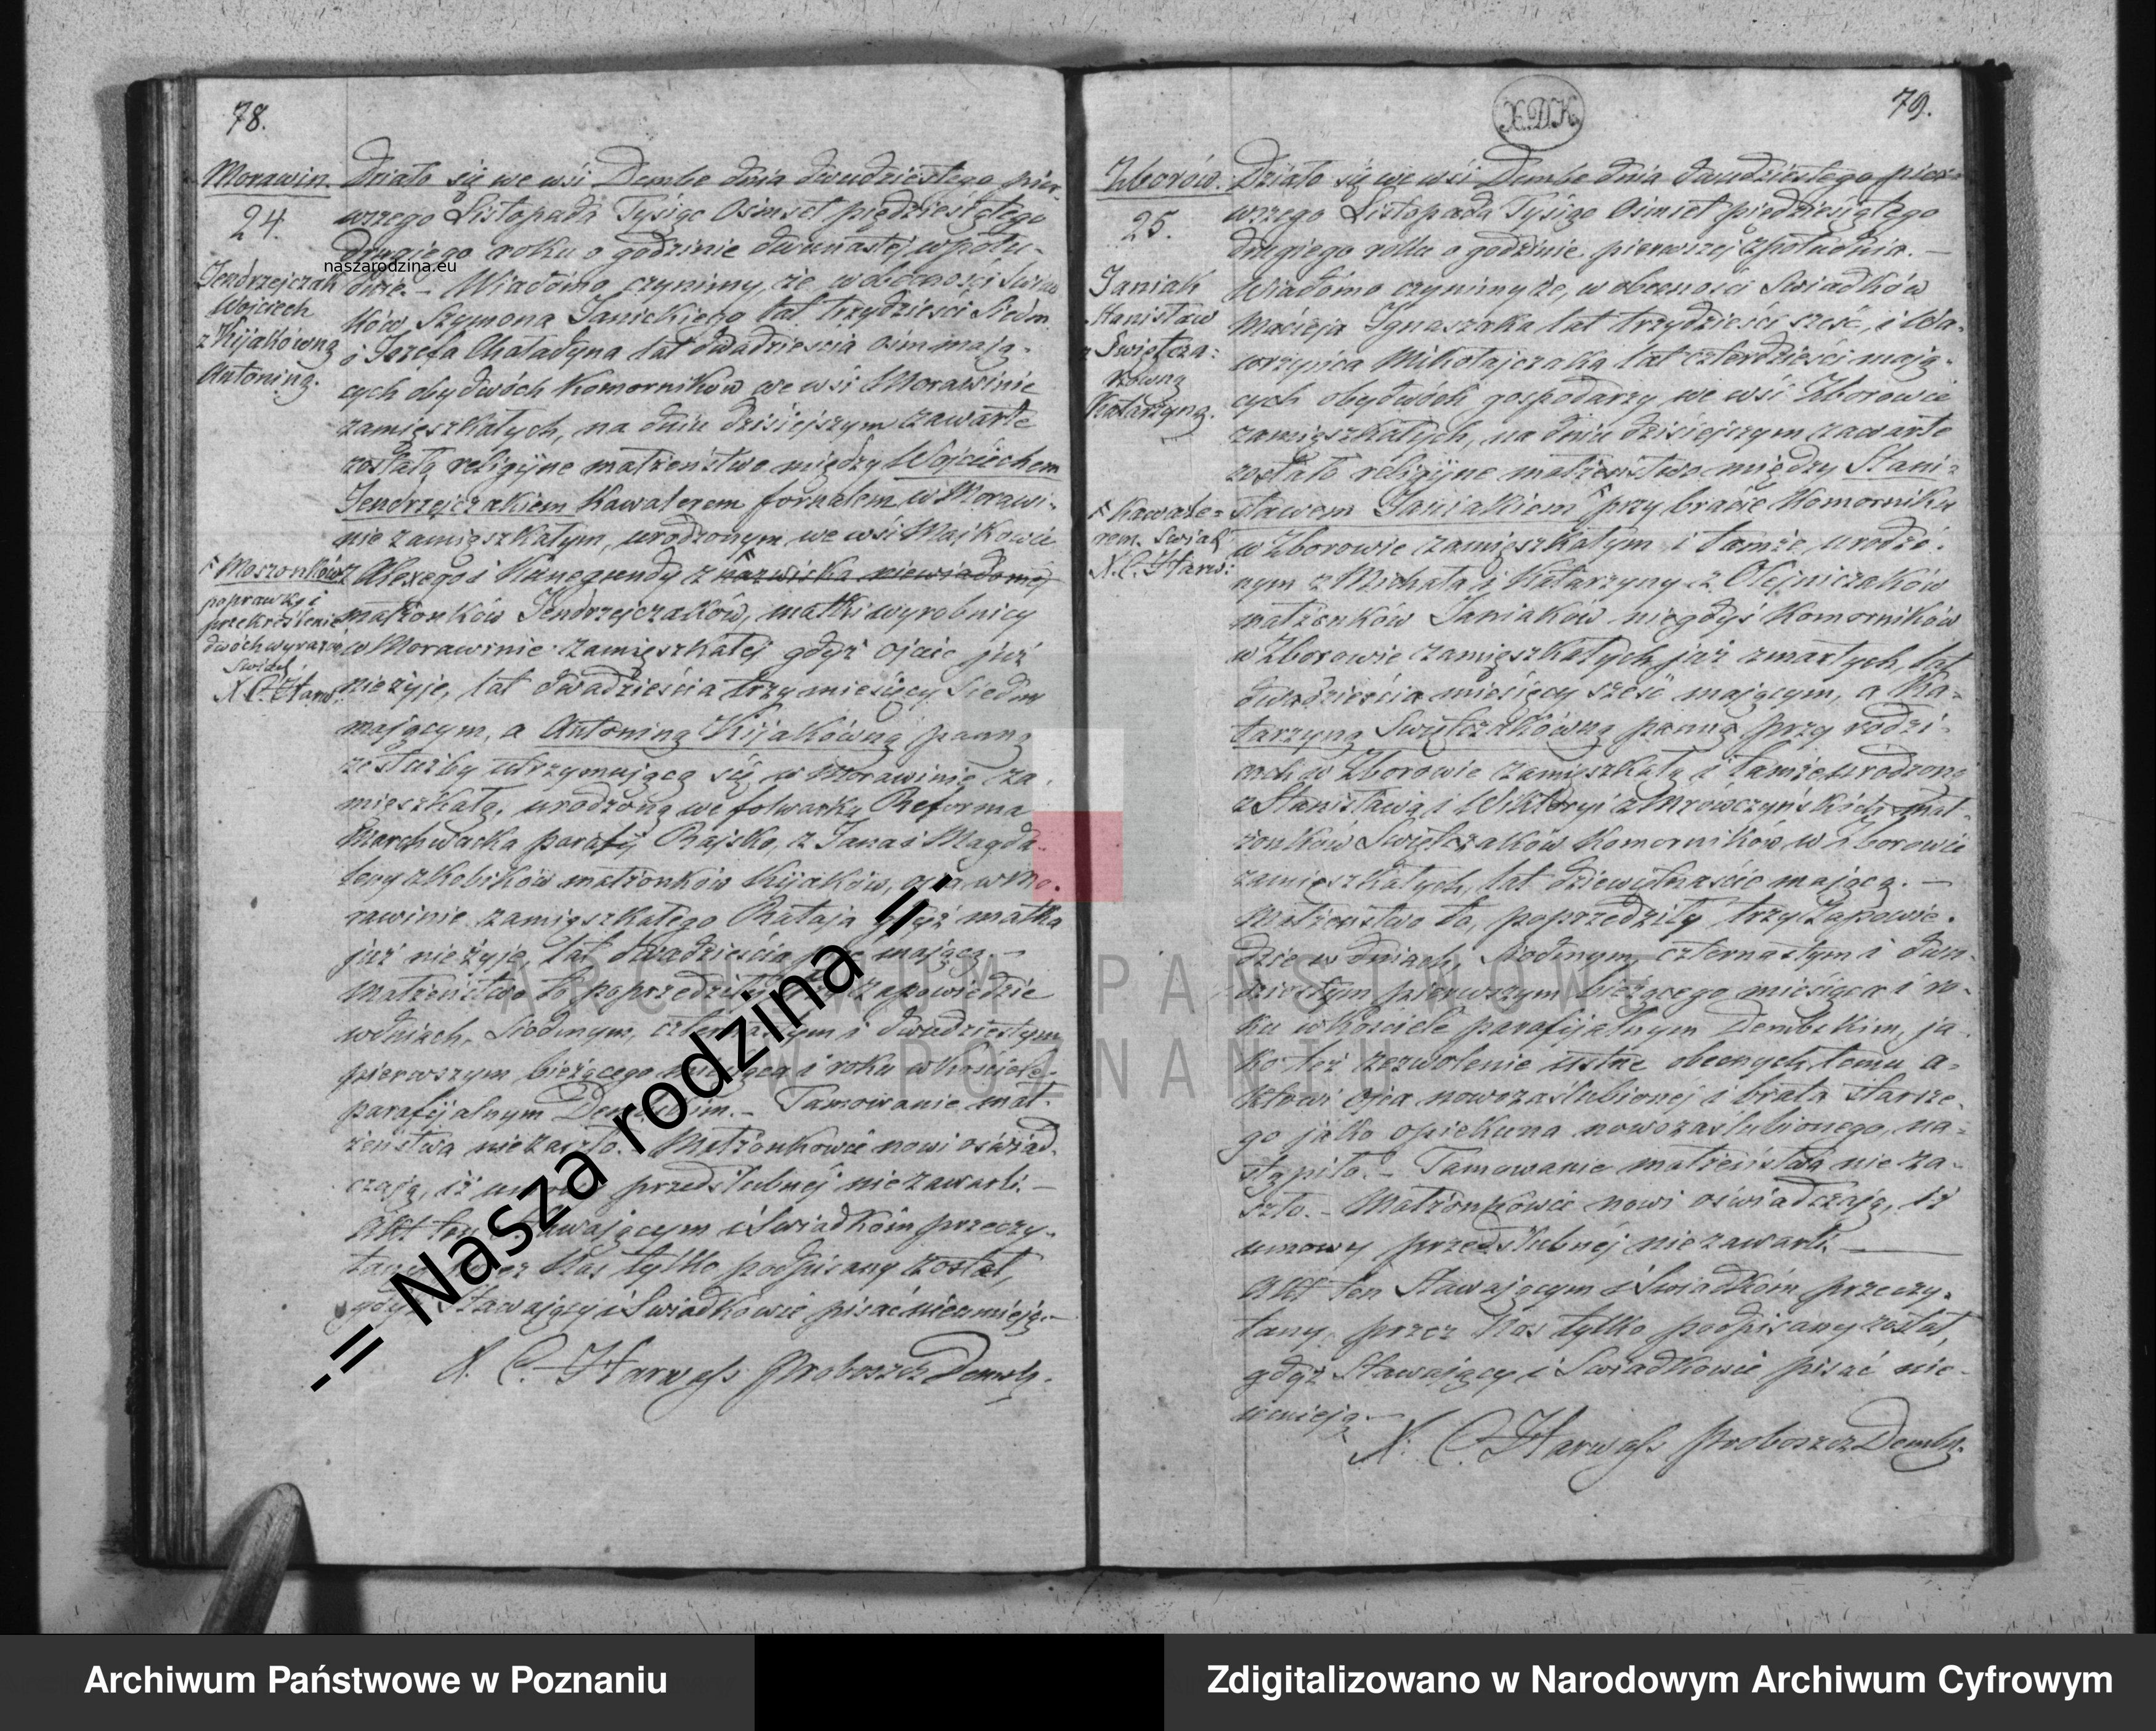 78.
Morawin.
24.
Jendrzejczak
Wojciech
z Kijakówną
Antoniną.
Działo się we wsi Dembe dnia dwudziestego pier-
wszego Listopada Tysiąc Ośmset pięćdziesiątego
drugiego roku o godzinie dwunastej w połu-
dnie. – Wiadomo czynimy, że w obecności Świad
ków Szymona Janickiego lat trzydzieści siedm
i Józefa Chaładyna lat dwadzieścia ośm mają-
cych obydwóch Komorników we wsi Morawinie
zamięszkałych, na dniu dzisiejszym zawarte
zostało religijne małżeństwo między Wojciechem
Jendrzejczakiem Kawalerem fornalem w Morawi-
nie zamięszkałym, urodzonym we wsi Majkowie
z Alexego i Kunegundy z nazwiska niewiadomej
małżonków Jendrzejczaków, matki wyrobnicy
w Morawinie zamięszkałej gdyż ojciec już
nieżyje, lat dwadzieścia trzy miesięcy siedm
mającym, a Antoniną Kijakówną panną
ze służby utrzymującą się w Morawinie za-
mieszkałą, urodzoną we folwarku Reforma
Marchwacka parafij Rajsko, z Jana i Magda-
leny z Kobików małżonków Kijaków, ojca w Mo-
rawinie zamięszkałego Rataja gdyż matka
już nieżyje, lat dwadzieścia mającą. –
Małżeństwo to poprzedziły trzy zapowiedzie
w dniach, siódmym, czternastym i dwudziestym
pierwszym bieżącego miesiąca i roku w kościele
parafijalnym Dembskim. – Tamowanie mał-
żeństwa niezaszło. Małżonkowie nowi oświad-
czają, iż umowy przedślubnéj niezawarli. –
Akt ten Stawającym i Świadkóm przeczy-
tany przez Nas tylko podpisany został,
gdyż Stawający i Świadkowie pisać nieumieją. –
X. C. Harwass Proboszcz Demb.
Moszonków
poprawkę i
przekreślenie
dwóch wyrazów
X. C. Harw.
naszarodzina.eu
-= Nasza rodzina =-
X.D.K.
79.
Zborów.
25.
Janiak
Stanisław
z Święcza-
kówną
Katarzyną.
Działo się we wsi Dembe dnia dwudziestego pier-
wszego Listopada Tysiąc Ośmset pięćdziesiątego
drugiego roku o godzinie pierwszej z południa. –
Wiadomo czynimy że, w obecności Świadków
Macieja Ignaszaka lat trzydzieści sześć, i Wa-
wrzyńca Mikołajczaka lat czterdzieści mają-
cych obydwóch gospodarzy we wsi Zborowie
zamięszkałych, na dniu dzisiejszym zawarte
zostało religijne małżeństwo między Stani-
sławem Janiakiem przy bracie Komorniku
w Zborowie zamięszkałym i tamże urodzo-
nym z Michała i Katarzyny z Olejniczaków
małżonków Janiaków niegdyś Komorników
w Zborowie zamięszkałych już zmarłych, lat
dwadzieścia miesięcy sześć mającym, a Ka-
tarzyną Swiętczakówną panną przy rodzi-
cach w Zborowie zamięszkałą i tamże urodzoną
z Stanisława i Wiktoryi z Mrówczyńskich mał-
żonków Swiętczaków Komorników w Zborowie
zamięszkałych, lat dziewiętnaście mającą. –
Małżeństwo to, poprzedziły trzy zapowie-
dzie w dniach, siódmym, czternastym i dwu-
dziestym pierwszym bieżącego miesiąca i ro-
ku w kościele parafijalnym Dembskim, ja-
ko też zezwolenie ustne obecnych temu a-
ktowi ojca nowozaślubionej i brata starsze-
go jako opiekuna nowozaślubionego, na-
stąpiło. – Tamowanie małżeństwa nieza-
szło. – Małżonkowie nowi oświadczają, iż
umowy przedślubnéj niezawarli. –
Akt ten Stawającym i Świadkóm przeczy-
tany, przez Nas tylko podpisany został,
gdyż Stawający i Świadkowie pisać nie-
umieją. –
X. C. Harwass Proboszcz Demb.
Kawale-
rem. Świad
X. C. Harw:
ARCHIWUM PAŃSTWOWE
W POZNANIU
Archiwum Państwowe w Poznaniu
Zdigitalizowano w Narodowym Archiwum Cyfrowym